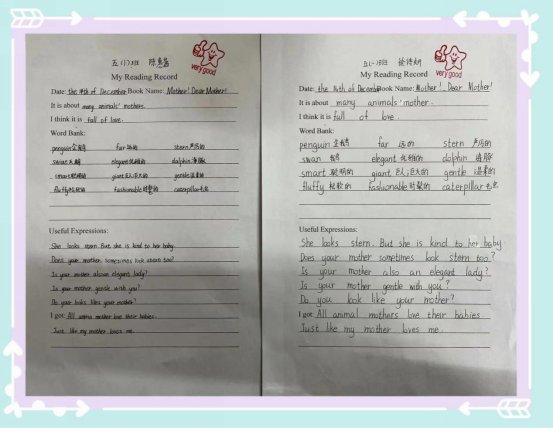 五(1)班
very good
My Reading Record
Date: the 14th of December Book Name: Mother! Dear Mother!
It is about many animals' mothers.
I think it is full of love.
Word Bank:
penguin企鹅 far 远的 stern严厉的
swan天鹅 elegant优雅的 dolphin海豚
smart聪明的 giant巨人;巨大的 gentle温柔的
fluffy松软的 fashionable时髦的 caterpillar毛虫
Useful Expressions:
She looks stern. But she is kind to her baby.
Does your mother sometimes look stern too?
Is your mother also an elegant lady?
Is your mother gentle with you?
Do your looks like your mother?
I got: All anima mother love their babies.
Just like my mother loves me.
very good
My Reading Record
Date: the 14th of December Book Name: Mother! Dear Mother!
It is about many animals' mother.
I think it is full of love.
Word Bank:
penguin 企鹅 far 远的 stern 严厉的
swan 天鹅 elegant 优雅的 dolphin 海豚
smart 聪明的 giant 巨人;巨大的 gentle 温柔的
fluffy 松软的 fashionable 时髦的 caterpillar 毛虫
Useful Expressions:
She looks stern. But she is kind to her baby
Does your mother sometimes look stern too?
Is your mother also an elegant lady?
Is your mother gentle with you?
Do you look like your mother?
I got: All animal mothers love their babies
Just like my mother loves me.